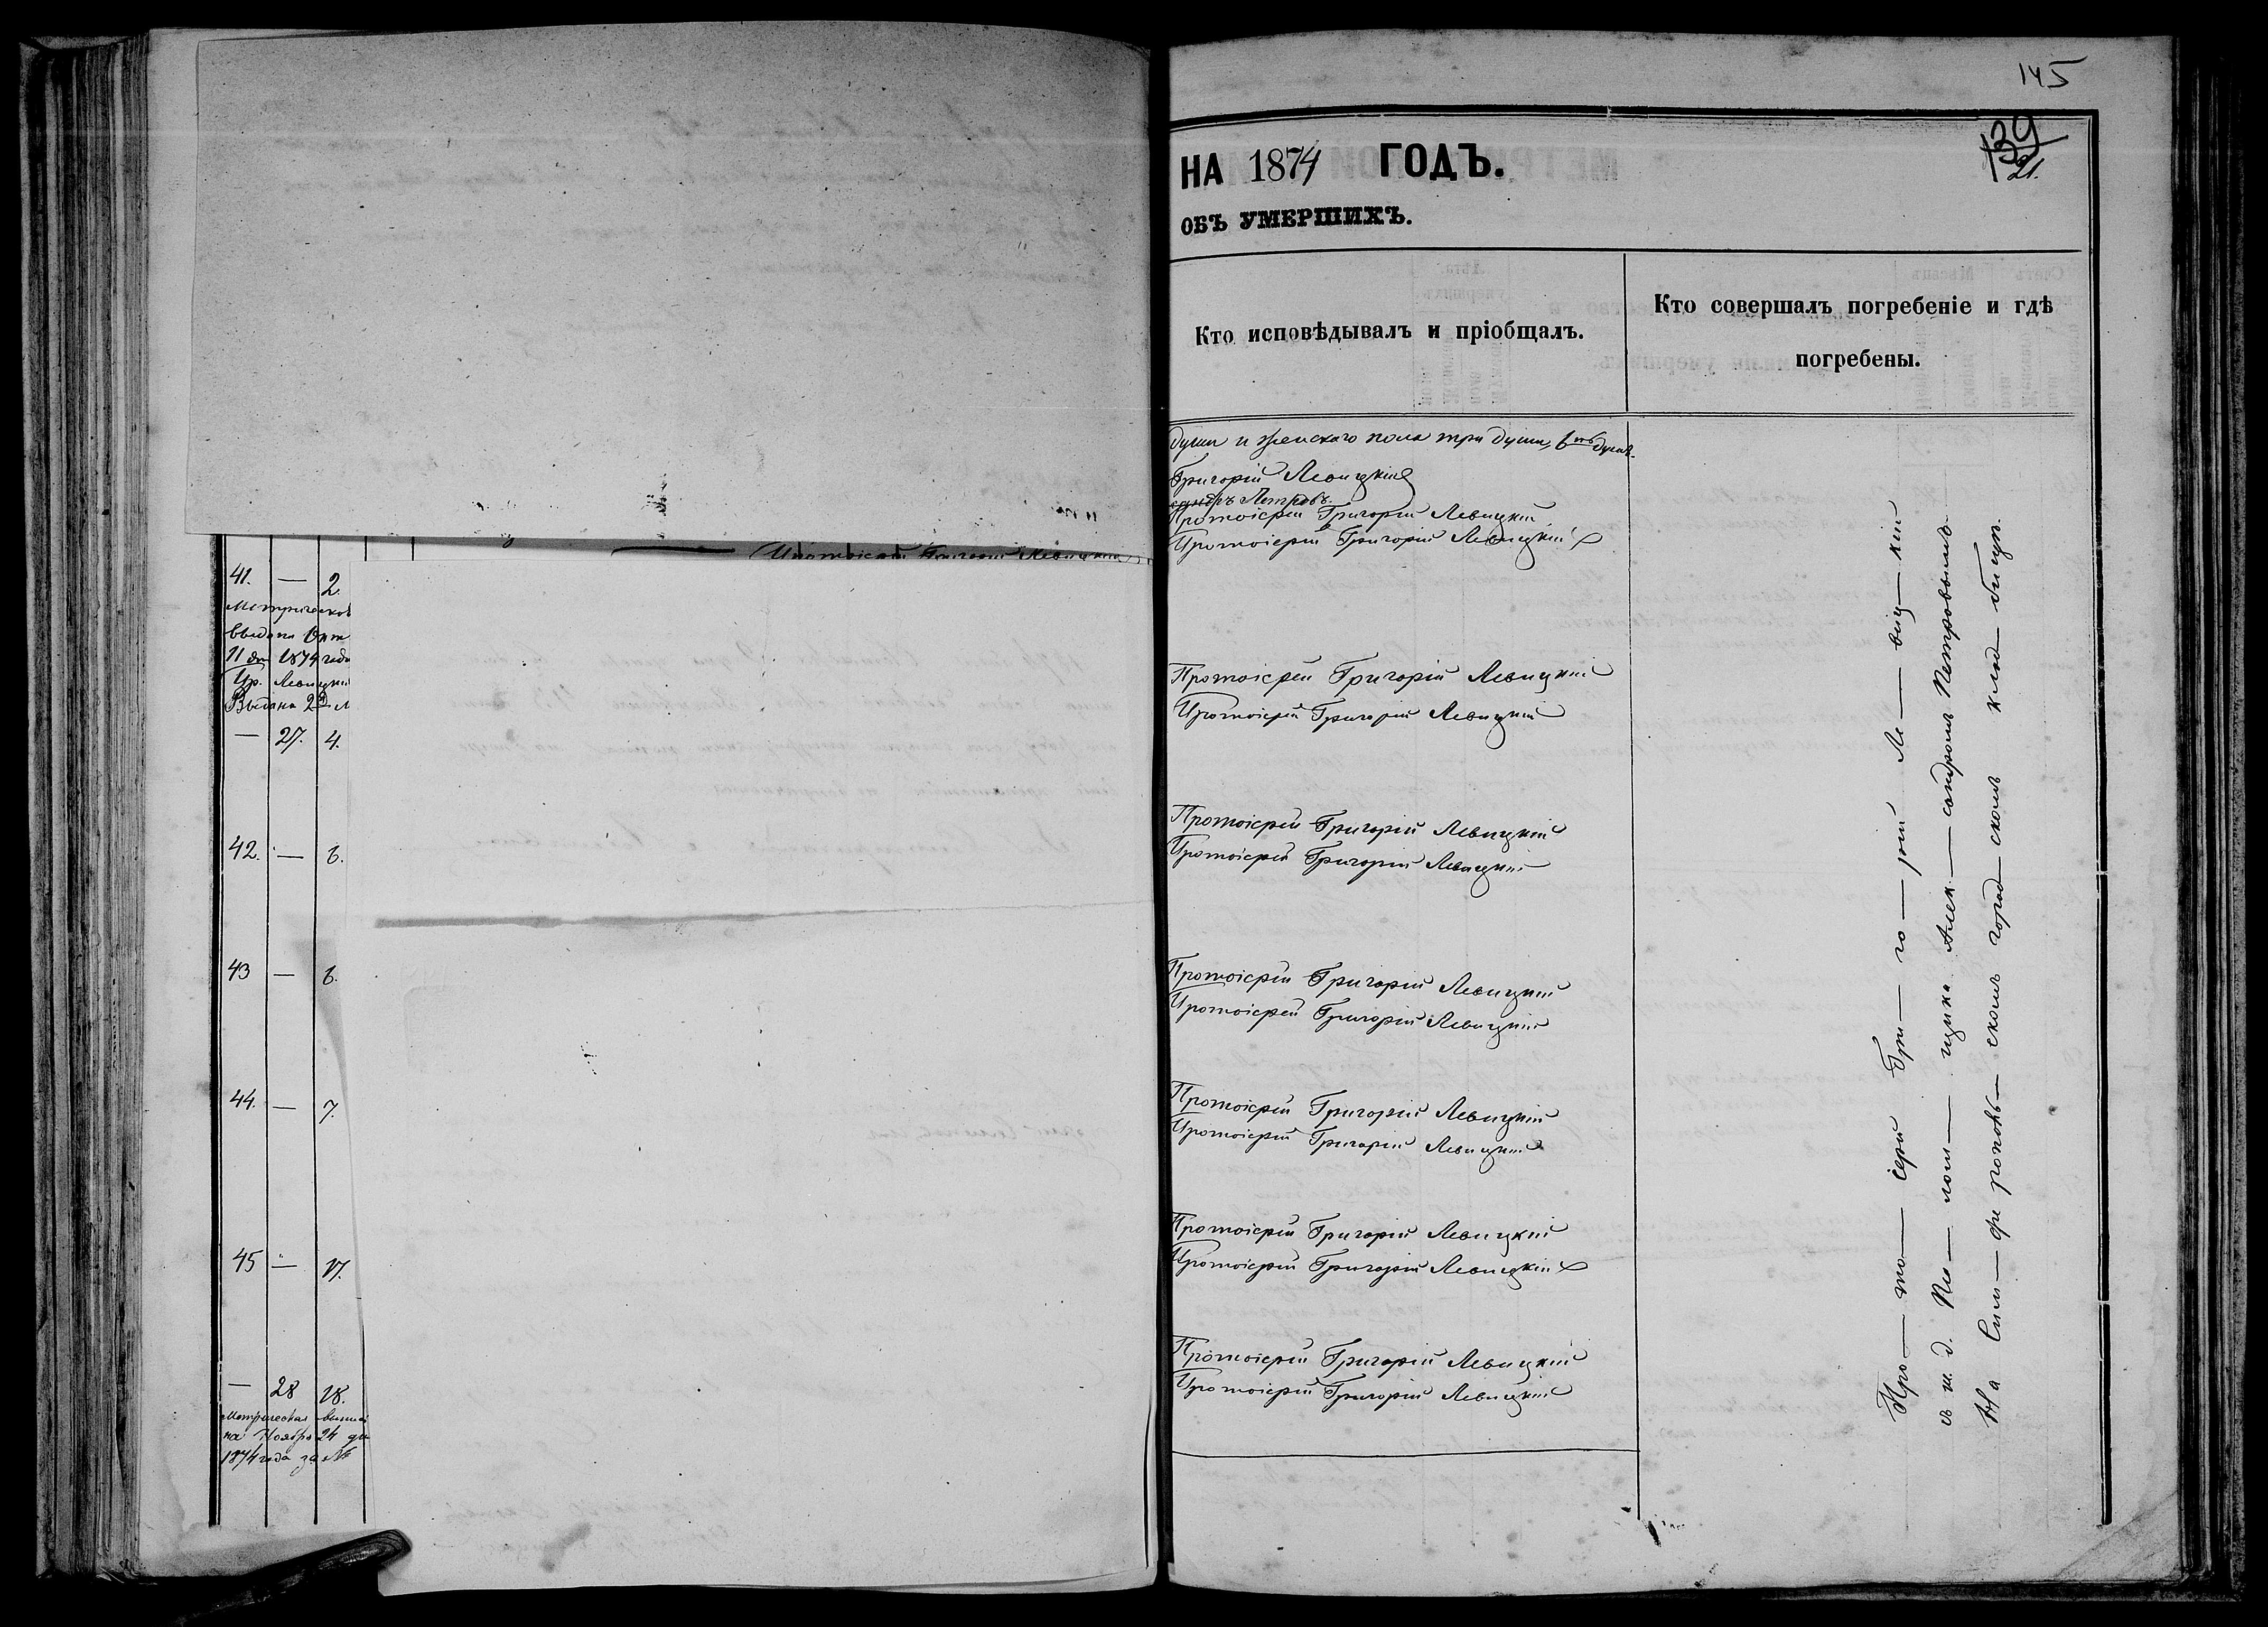 Протоіерей Григорій Левицкій
41. — 2.
Метрическ
выдана Окт
11 дня 1874 года
Пр. Левицкій
Выдана 2
— 27. 4.
42. — 6.
43 — 6.
44. — 7.
45 — 17.
— 28 18.
Метрическая выпи
на Ноября 24 дн
1874 года за №
145
139
21.
НА 1874 ГОДЪ.
ОБЪ УМЕРШИХЪ.
Кто исповѣдывалъ и пріобщалъ.
Кто совершалъ погребеніе и гдѣ
погребены.
души и женскаго пола три души,
Григорій Левицкій
сандръ Петровъ.
Протоіерей Григорій Левицкій
Протоіерей Григорій Левицкій
Протоіерей Григорій Левицкій
Протоіерей Григорій Левицкій
Протоіерей Григорій Левицкій
Протоіерей Григорій Левицкій
Протоіерей Григорій Левицкій
Протоіерей Григорій Левицкій
Протоіерей Григорій Левицкій
Протоіерей Григорій Левицкій
Протоіерей Григорій Левицкій
Протоіерей Григорій Левицкій
Протоіерей Григорій Левицкій
Протоіерей Григорій Левицкій
Про — то — іерей Гри — го — рій Ле — виц — кій
съ и. д. Пса — лом — щика Алек — сандромъ Петровымъ
На Сим — феропольскомъ город — скомъ клад — бищѣ.